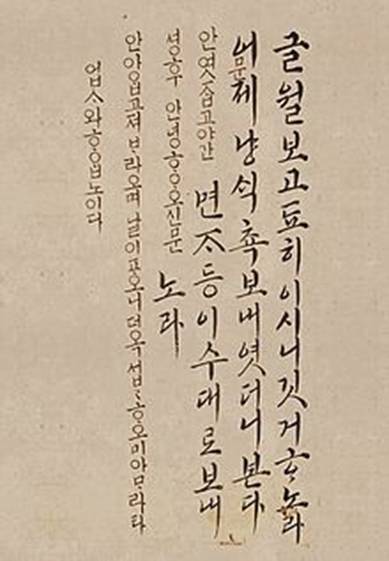 글월 보고 됴히 이시니 깃거ᄒᆞ노라
어제 냥 ᄉᆡᆨ 쵹 보내엿더니 본다
면ᄌᆞ등 이 수대로 보내
노라
문
안 엿ᄌᆞᆸ고 야간
셩후 안녕ᄒᆞᄋᆞ오신 문
안 아ᄋᆞᆸ고져 ᄇᆞ라오며 날이 더옥 섭섭ᄒᆞ오미 아ᄆᆞ라타
업ᄉᆞ와 ᄒᆞᄋᆞᆸ노이다